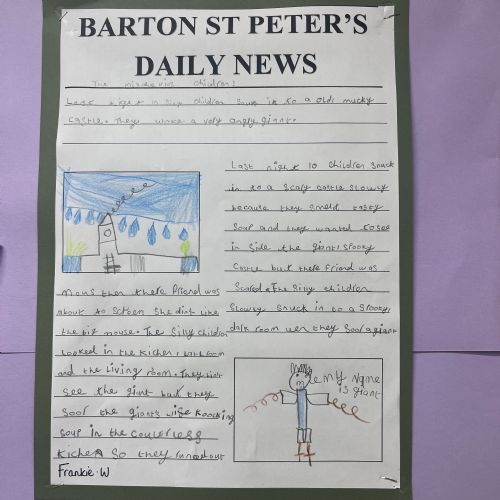 BARTON ST PETER'S
DAILY NEWS
The mischevis children!
Last night 10 silly children snuk in to a old, mucky
castle. They woke a very angry giant.
Last night 10 children snuck
in to a scary castle slowly
because they smeld tasty
soup and they wanted to see
in side the giant spooky
castle but there friend was
scared. The silly children
slowly snuck in to a spooky,
dark room wen they soor a giant
mous then there friend was
about to screem she dint like
the big mouse. The silly children
looked in the kichen, bathroom
and the living room. They dint
see the giant but they
soor the giants wife koocking
soup in the coulerless
kichen so they runed out
my name
is giant
Frankie.W